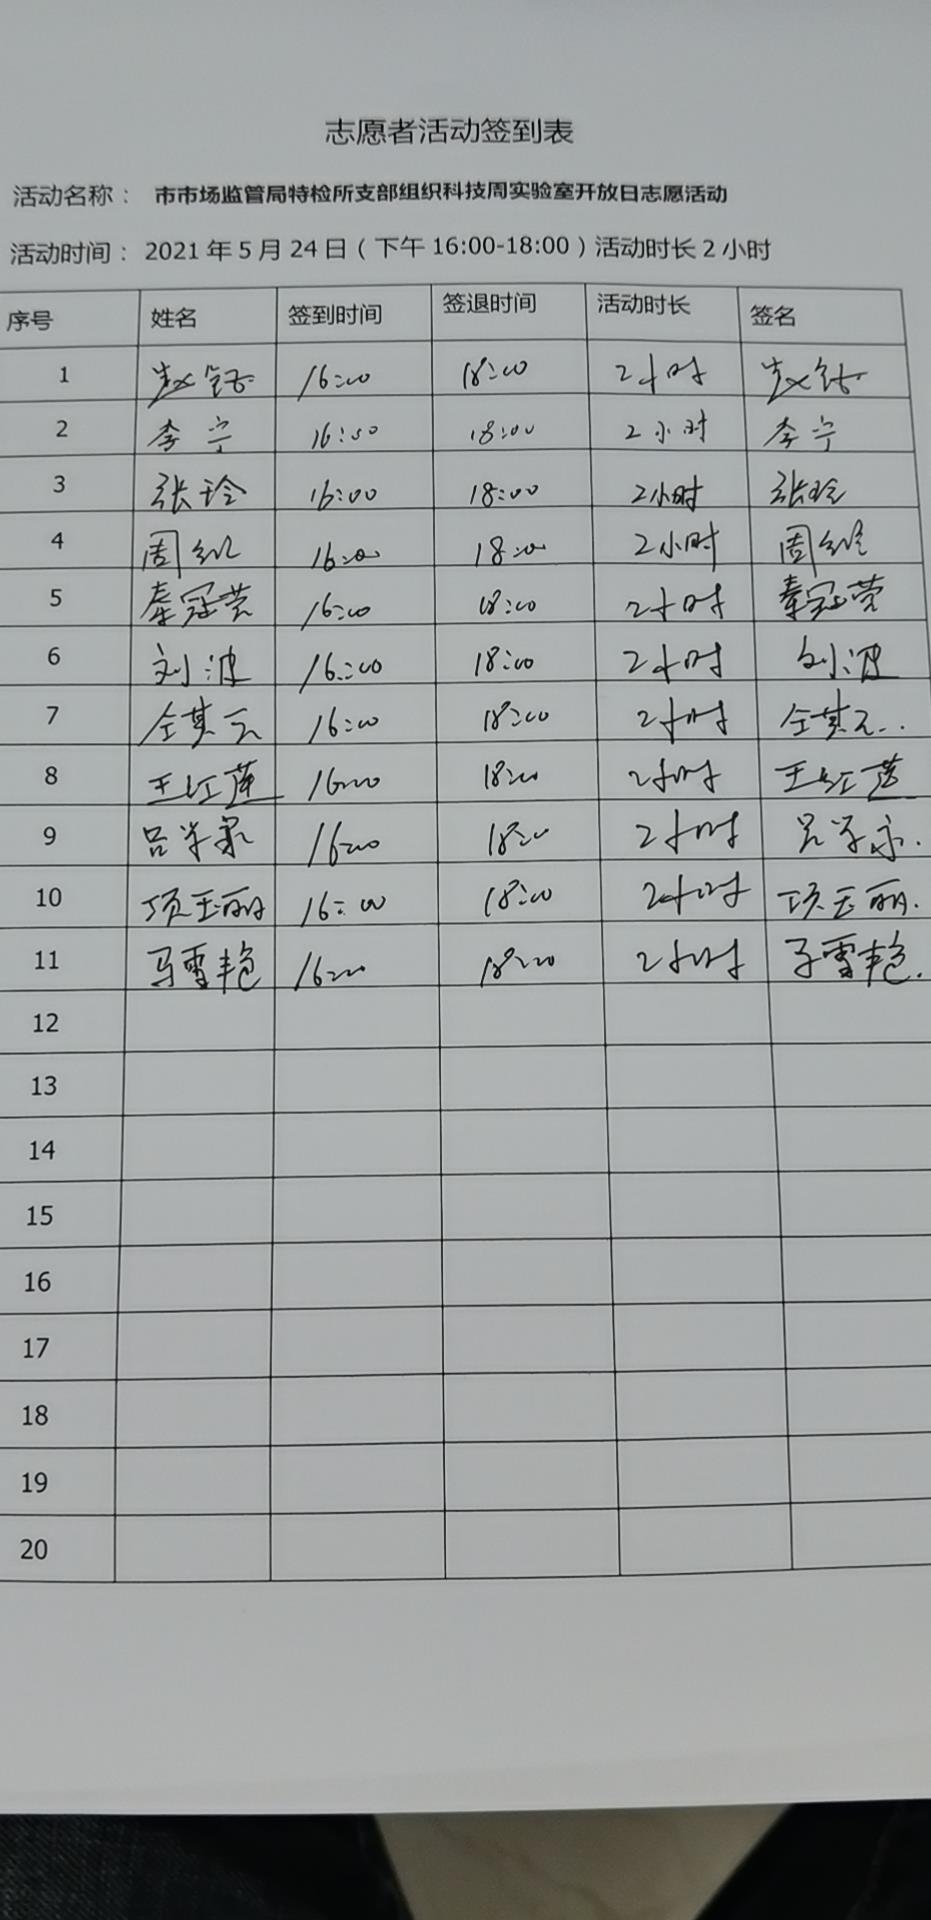 志愿者活动签到表
活动名称： 市市场监管局特检所支部组织科技周实验室开放日志愿活动
活动时间： 2021 年 5 月 24 日（下午 16:00-18:00）活动时长 2 小时
序号 姓名 签到时间 签退时间 活动时长 签名
1 赵 16:00 18:00 2小时 赵
2 李宁 16:00 18:00 2小时 李宁
3 张玲 16:00 18:00 2小时 张玲
4 周 16:00 18:00 2小时 周
5 秦冠荣 16:00 18:00 2小时 秦冠荣
6 刘波 16:00 18:00 2小时 刘波
7 仝其云 16:00 18:00 2小时 仝其云
8 王红莲 16:00 18:00 2小时 王红莲
9 吕学 16:00 18:00 2小时 吕学
10 项玉丽 16:00 18:00 2小时 项玉丽
11 马雪艳 16:00 18:00 2小时 马雪艳
12
13
14
15
16
17
18
19
20